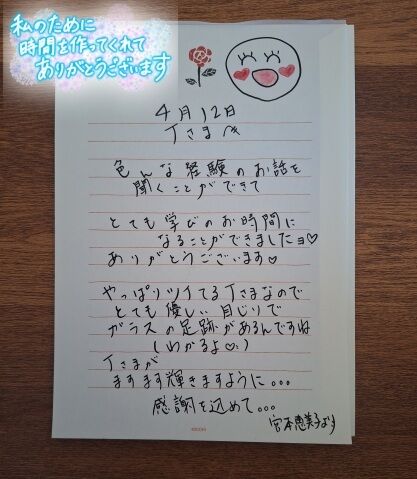 私のために
時間を作ってくれて
ありがとうございます
4月12日
Tさまへ
色んな経験のお話を
聞くことができて
とても学びのお時間に
なることができましたョ♡
ありがとうございます♡
やっぱりツイてるTさまなので
とても優しい目じりで
ガラスの足跡があるんですね
(わかるよ♡)
Tさまが
ますます輝きますように...
感謝を込めて...
宮本恵美子より